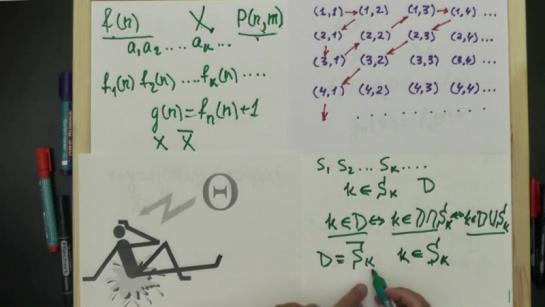 f(n) X, P(n,m)
a₁a₂....aₖ...
f₁(n) f₂(n)....fₖ(n)....
g(n)=fₙ(n)+1
X X̅
(1,1) → (1,2) (1,3) → (1,4) ...
(2,1) (2,2) (2,3) (2,4) ...
(3,1) (3,2) (3,3) (3,4) ...
(4,1) (4,2) (4,3) (4,4) ...
Θ
S₁ S₂ ... Sₖ ....
k ∈ Sₖ D
k∈D ⇔ k∈D∩Sₖ ⇔ k∈D∪Sₖ
D = S̅ₖ k ∈ Sₖ